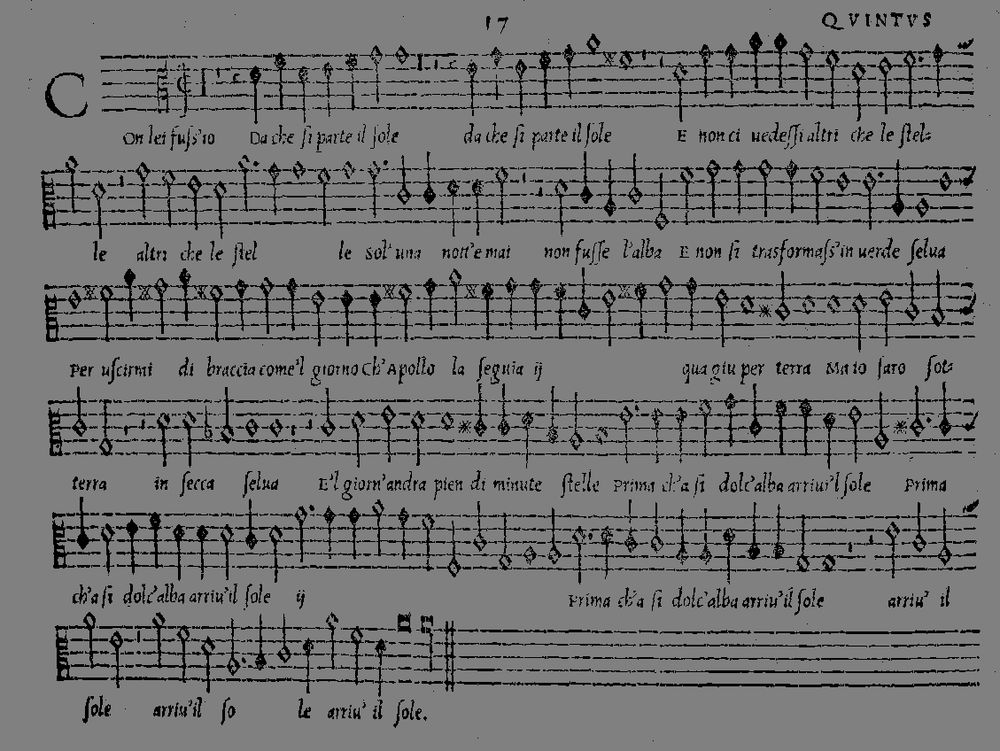 17
QVINTVS
COn lei fuſs'io Da che ſi parte il ſole da che ſi parte il ſole E non ci uedeſſi altri che le ſtel-
le altri che le ſtel le Sol' una nott'e mai non fuſſe l'alba E non ſi trasformaſs'in uerde ſelua
Per uſcirmi di braccia come'l giorno Ch'Apollo la ſeguia ij qua giu per terra Ma io ſaro ſot-
terra in ſecca ſelua E'l giorn'andra pien di minute ſtelle Prima ch'a ſi dolc'alba arriui'l ſole Prima
ch'a ſi dolc'alba arriu'il ſole ij Prima ch'a ſi dolc'alba arriu'il ſole arriu' il
ſole arriu'il ſo le arriu' il ſole.